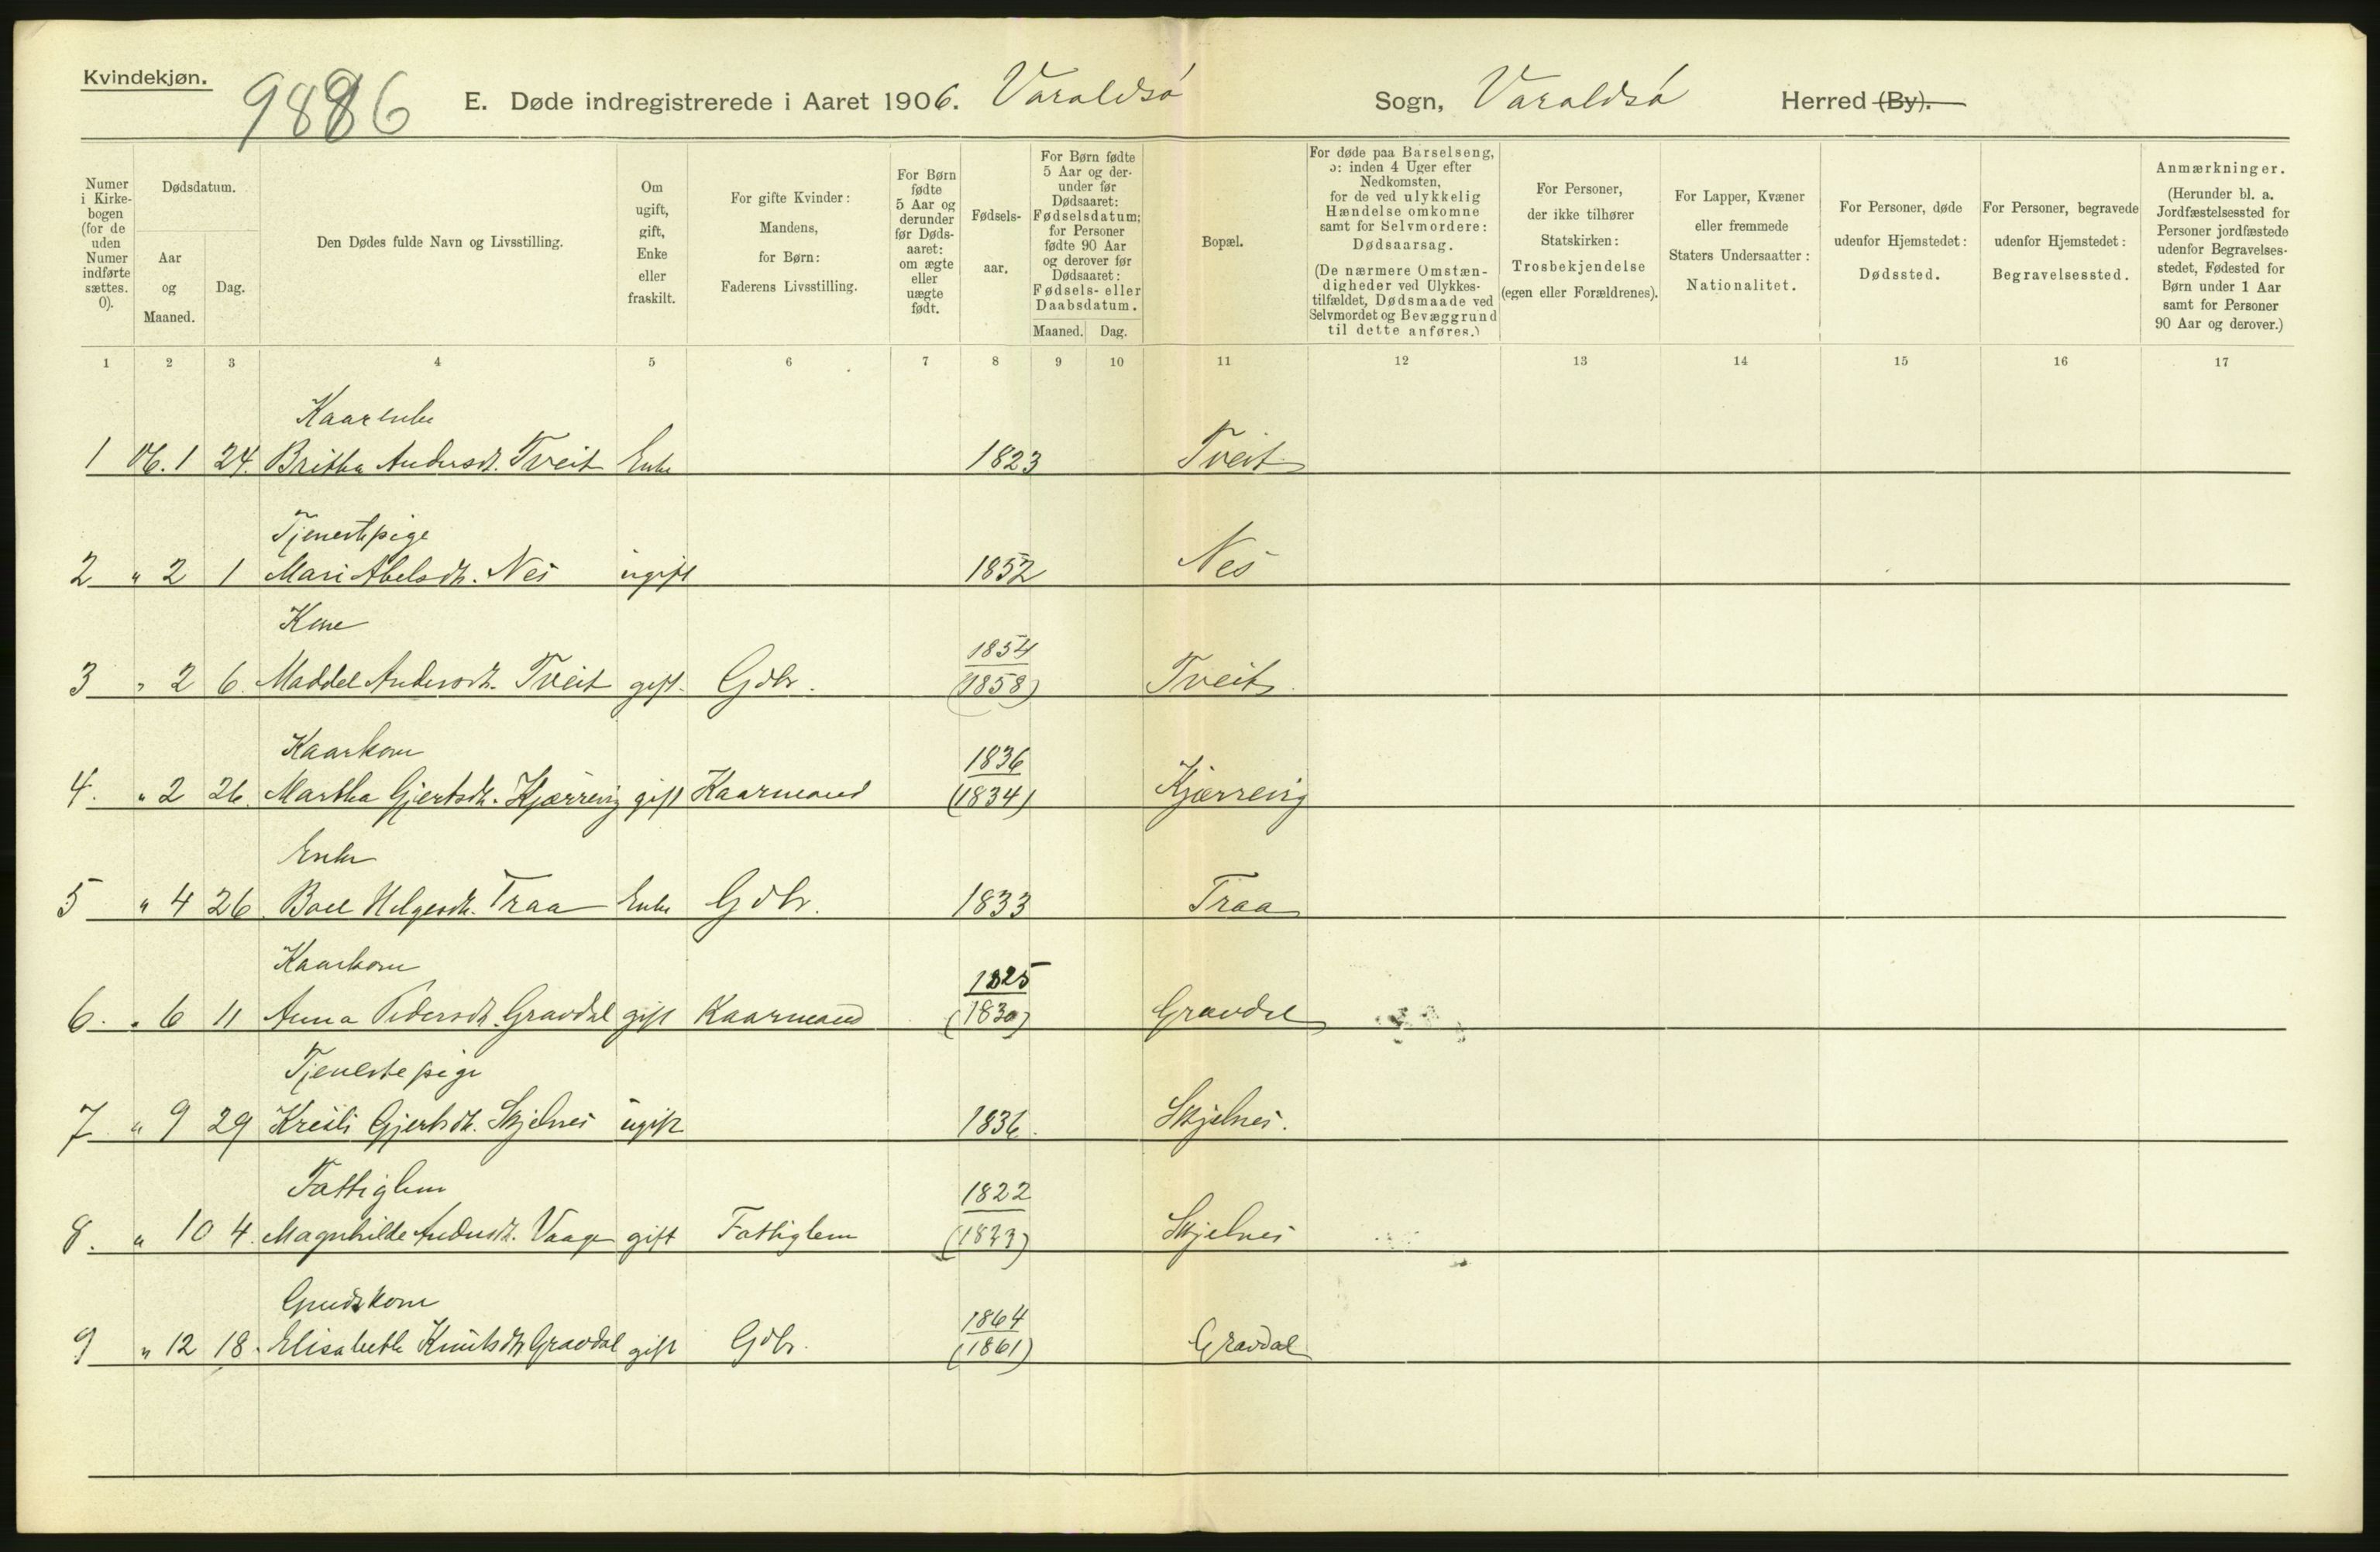 Kvindekjøn.
9886
E. Døde indregistrerede i Aaret 1906. Varaldsø Sogn, Varaldsø Herred (By).
Numer i Kirkebogen (for de uden Numer indførte sættes. 0).
Dødsdatum.
Aar og Maaned.
Dag.
Den Dødes fulde Navn og Livsstilling.
Om ugift, gift, Enke eller fraskilt.
For gifte Kvinder: Mandens, for Børn: Faderens Livsstilling.
For Børn fødte 5 Aar og derunder før Dødsaaret: om ægte eller uægte født.
Fødselsaar.
For Børn fødte 5 Aar og derunder før Dødsaaret: Fødselsdatum; for Personer fødte 90 Aar og derover før Dødsaaret: Fødsels- eller Daabsdatum.
Maaned. Dag.
Bopæl.
For døde paa Barselseng, ɔ: inden 4 Uger efter Nedkomsten, for de ved ulykkelig Hændelse omkomne samt for Selvmordere: Dødsaarsag. (De nærmere Omstændigheder ved Ulykkestilfældet, Dødsmaade ved Selvmordet og Bevæggrund til dette anføres.)
For Personer, der ikke tilhører Statskirken: Trosbekjendelse (egen eller Forældrenes).
For Lapper, Kvæner eller fremmede Staters Undersaatter: Nationalitet.
For Personer, døde udenfor Hjemstedet: Dødssted.
For Personer, begravede udenfor Hjemstedet: Begravelsessted.
Anmærkninger. (Herunder bl. a. Jordfæstelsessted for Personer jordfæstede udenfor Begravelsesstedet, Fødested for Børn under 1 Aar samt for Personer 90 Aar og derover.)
1 2 3 4 5 6 7 8 9 10 11 12 13 14 15 16 17
Kaarenke
1 06.1 24. Britha Andersdt. Tveit Enke 1823 Tveit
Tjenestepige
2 " 2 1 Mari Abelsdt. Nes ugift 1852 Nes
Kone
1854
3 " 2 6. Maddel Andersdt. Tveit gift. Gdbr. (1858) Tveit
Kaarkone
1836
4. " 2 26. Martha Gjertsdt. Kjærrevig gift Kaarmand (1834) Kjærrevig
Enke
5 " 4 26. Boel Helgesdt. Traa Enke Gdbr. 1833 Traa
Kaarkone
1825
6. " 6 11 Anna Pedersdt. Gravdal gift Kaarmand (1830) Gravdal
Tjenestepige
7 " 9 29 Kresti Gjertsdt. Skjelnes ugift 1836. Skjelnes.
Fattiglem
1822
8. " 10 4. Magnhilde Andersdt. Vaage gift Fattiglem (1823) Skjelnes
Gmdskone
1864
9 " 12 18. Elisabeth Knutsdt. Gravdal gift Gdbr. (1861) Gravdal